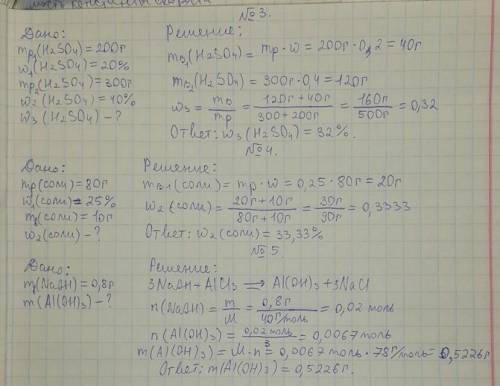 №3.
Дано:
mр₁(H₂SO₄)=200г
w₁(H₂SO₄)=20%
mр₂(H₂SO₄)=300г
w₂(H₂SO₄)=40%
w₃(H₂SO₄)-?
Решение:
mв₁(H₂SO₄)=mр·w=200г·0,2=40г
mв₂(H₂SO₄)=300г·0,4=120г
w₃=mв/mр=120г+40г/300+200г=160г/500г=0,32
Ответ: w₃(H₂SO₄)=32%.
№4.
Дано:
mр(соли)=80г
w₁(соли)=25%
m(соли)=10г
w₂(соли)-?
Решение:
mв₁(соли)=mр·w=0,25·80г=20г
w₂(соли)=20г+10г/80г+10г=30г/90г=0,3333
Ответ: w₂(соли)=33,33%
№5
Дано:
m(NaOH)=0,8г
m(Al(OH)₃)-?
Решение:
3NaOH+AlCl₃⟶Al(OH)₃+3NaCl
n(NaOH)=m/M=0,8г/40г/моль=0,02моль
n(Al(OH)₃)=0,02моль/3=0,0067моль
m(Al(OH)₃)=M·n=0,0067моль·78г/моль=0,5226г.
Ответ: m(Al(OH)₃)=0,5226г.